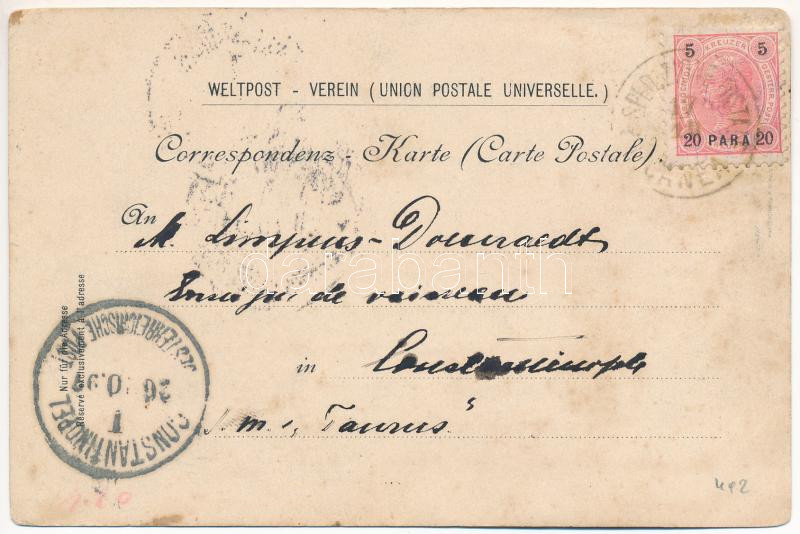 5 KREUZER 5
20 PARA 20
WELTPOST - VEREIN (UNION POSTALE UNIVERSELLE.)
Correspondenz - Karte (Carte Postale).
An
M. Limpens-Doenraedt
Enseigne de vaisseau
in Constantinople
S. m. „Taurus"
Nur für die Adresse
Réservé exclusivement à l'adresse
CONSTANTINOPEL I
OESTERREICHISCHE
26
darabanth
492